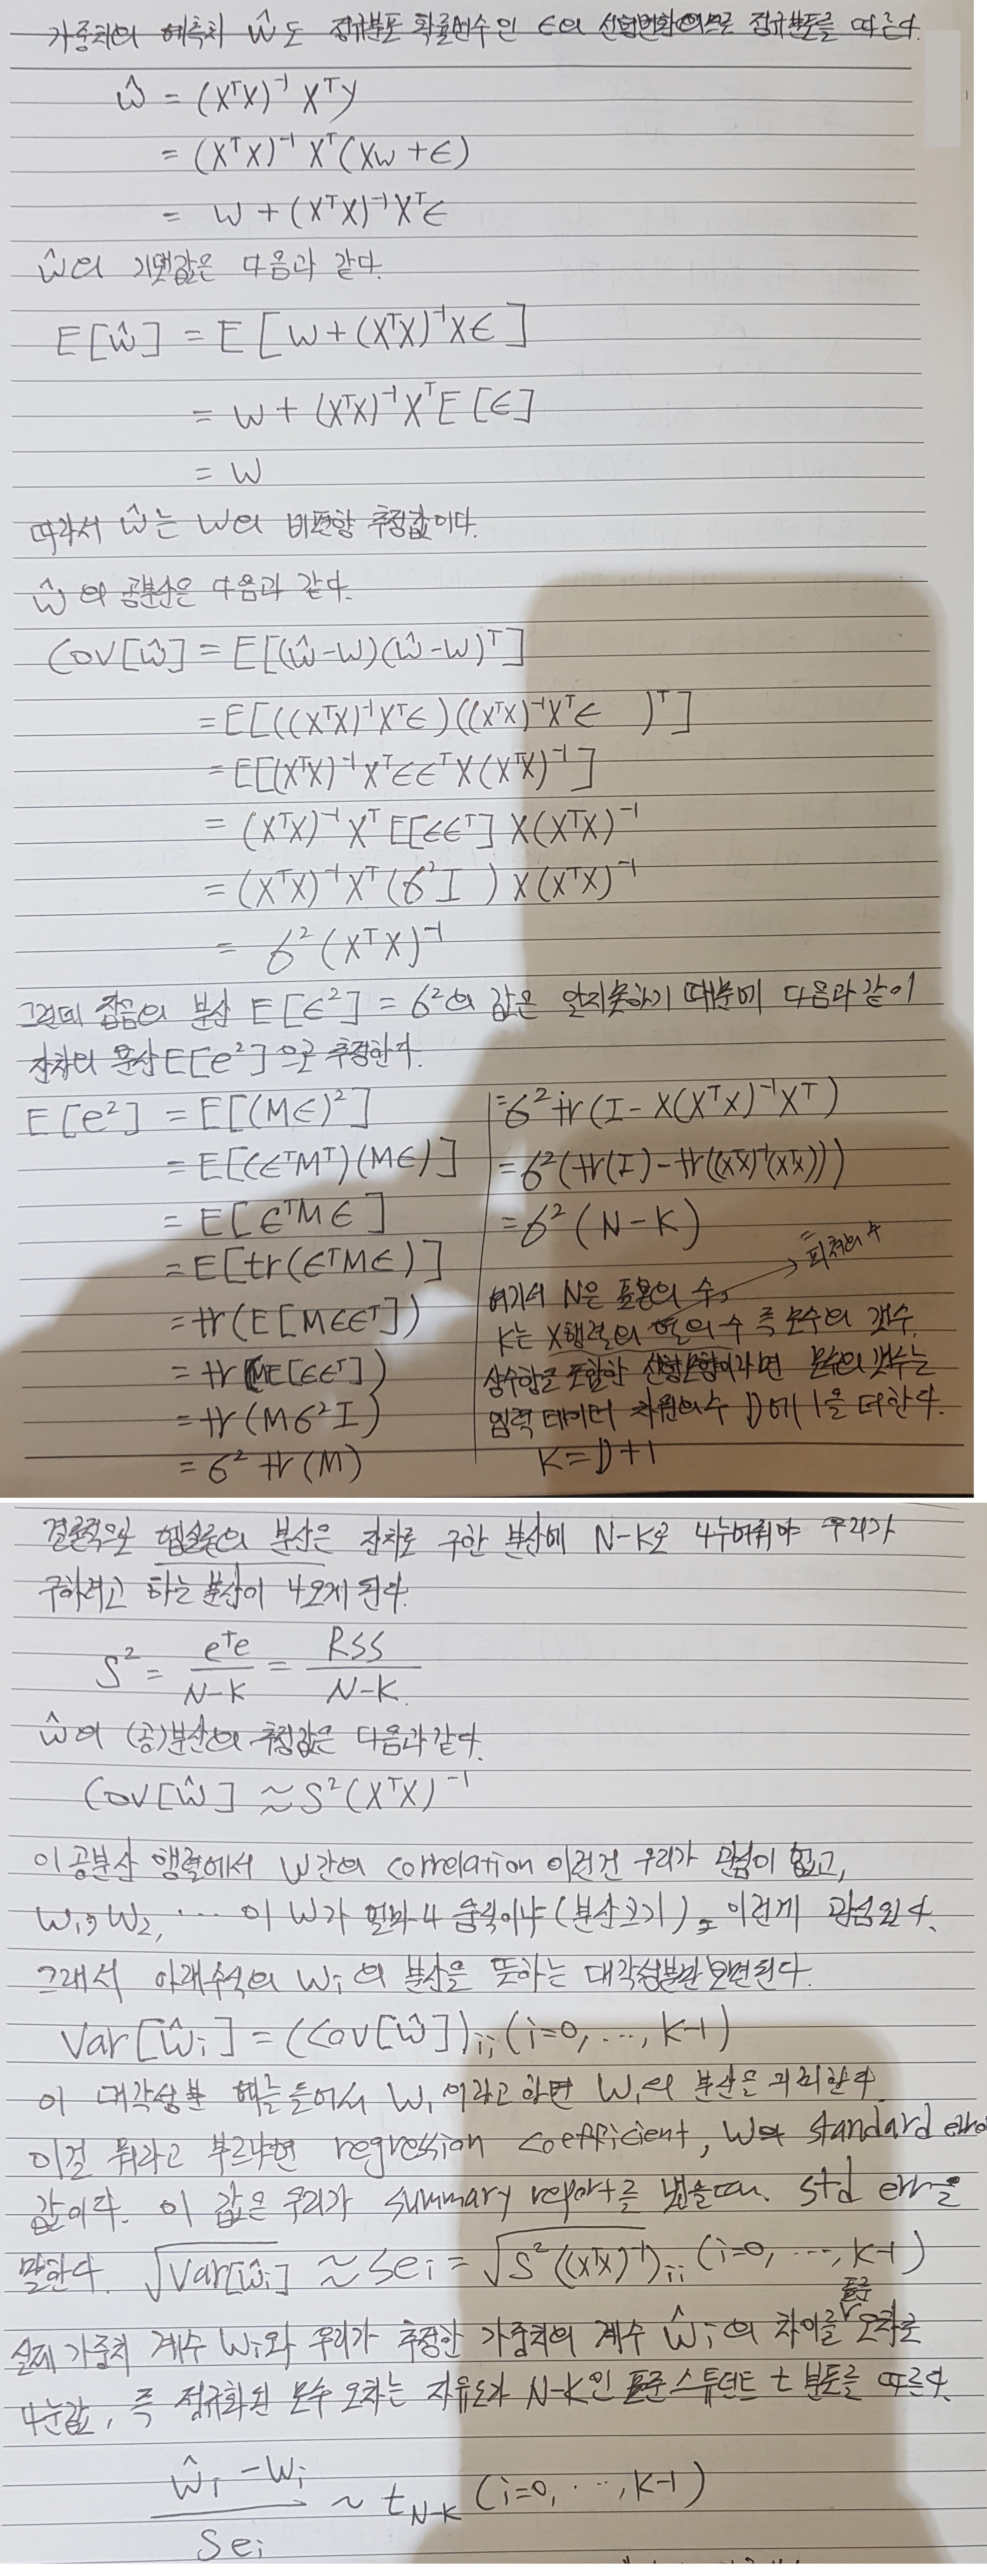 가중치의 예측치 ŵ도 정규분포 확률변수인 ϵ의 선형변환이므로 정규분포를 따른다.
ŵ = (XᵀX)⁻¹Xᵀy
= (XᵀX)⁻¹Xᵀ(Xw+ϵ)
= w + (XᵀX)⁻¹Xᵀϵ
ŵ의 기댓값은 다음과 같다.
E[ŵ] = E[w+(XᵀX)⁻¹Xϵ]
= w + (XᵀX)⁻¹XᵀE[ϵ]
= w
따라서 ŵ는 w의 비편향 추정값이다.
ŵ의 공분산은 다음과 같다.
Cov[ŵ] = E[(ŵ-w)(ŵ-w)ᵀ]
= E[((XᵀX)⁻¹Xᵀϵ)((XᵀX)⁻¹Xᵀϵ )ᵀ]
= E[(XᵀX)⁻¹XᵀϵϵᵀX(XᵀX)⁻¹]
= (XᵀX)⁻¹XᵀE[ϵϵᵀ]X(XᵀX)⁻¹
= (XᵀX)⁻¹Xᵀ(σ²I )X(XᵀX)⁻¹
= σ²(XᵀX)⁻¹
그런데 잡음의 분산 E[ϵ²] = σ²의 값은 알지못하기 때문에 다음과 같이
잔차의 분산 E[e²]으로 추정한다.
E[e²] = E[(Mϵ)²]
= E[(ϵᵀMᵀ)(Mϵ)]
= E[ϵᵀMϵ]
= E[tr(ϵᵀMϵ)]
= tr(E[Mϵϵᵀ])
= tr(ME[ϵϵᵀ])
= tr(Mσ²I)
= σ² tr(M)
= σ² tr(I - X(XᵀX)⁻¹Xᵀ)
= σ²(tr(I) - tr((XᵀX)⁻¹(XᵀX)))
= σ²(N-K)
= 피처의 수
여기서 N은 표본의 수,
K는 X행렬의 열의 수 즉 모수의 갯수.
상수항을 포함한 선형모형이라면 모수의 갯수는
입력 데이터 차원의 수 D에 1을 더한다.
K=D+1
결론적으로 엡실론의 분산은 잔차로 구한 분산에 N-K로 나누어줘야 우리가
구하려고 하는 분산이 나오게 된다.
S² = eᵀe/N-K = RSS/N-K
ŵ의 (공)분산의 추정값은 다음과같다.
Cov[ŵ] ≈ S²(XᵀX)⁻¹
이 공분산 행렬에서 W간의 correlation 이런건 우리가 관심이 없고,
W₁, W₂, ... 이 W가 얼마나 움직이냐(분산크기), 이런게 관심있다.
그래서 아래수식의 Wi의 분산을 뜻하는 대각성분만 보면된다.
Var[ŵi] = (Cov[ŵ])ii (i=0, ..., K-1)
이 대각성분 예를 들어서 W₁ 이라고 하면 W₁의 분산을 의미한다.
이걸 뭐라고 부르냐면 regression coefficient, W의 standard error
값이다. 이 값은 우리가 summary report를 냈을때. std err을
말한다. √Var[ŵi] ≈ sei = √S²((XᵀX)⁻¹)ii (i=0, ..., K-1)
실제 가중치 계수 Wi와 우리가 추정한 가중치의 계수 ŵi의 차이를 표준오차로
나눈값, 즉 정규화된 모수 오차는 자유도가 N-K인 표준 스튜던트 t 분포를 따른다.
ŵi - wi/sei ~ tN-K (i=0, ..., K-1)